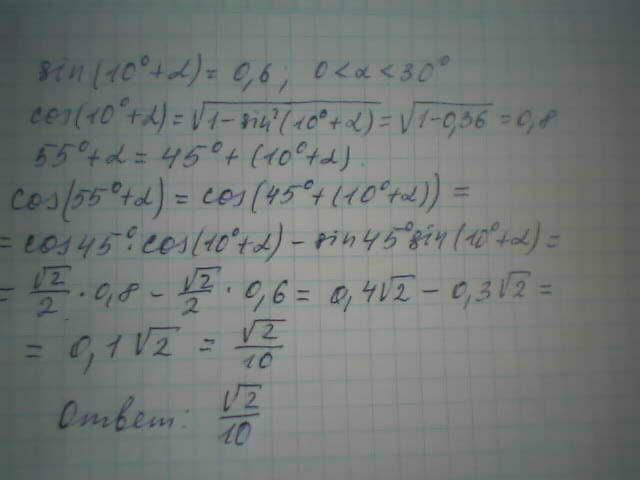 sin(10°+α) = 0,6; 0<α<30°
cos(10°+α) = √(1-sin²(10°+α)) = √(1-0,36) = 0,8
55°+α = 45°+(10°+α).
cos(55°+α) = cos(45°+(10°+α)) =
= cos45°·cos(10°+α) - sin45°sin(10°+α) =
= √2/2 · 0,8 - √2/2 · 0,6 = 0,4√2 - 0,3√2 =
= 0,1√2 = √2/10
Ответ: √2/10